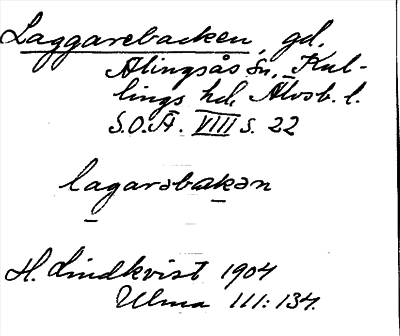 Laggarebacken, gd,
Alingsås sn, Kul-
lings hd, Älvsb. l.
S.O.Ä. VIII s. 22
lagarəbakən
H. Lindkvist 1904
Ulma 111:134.